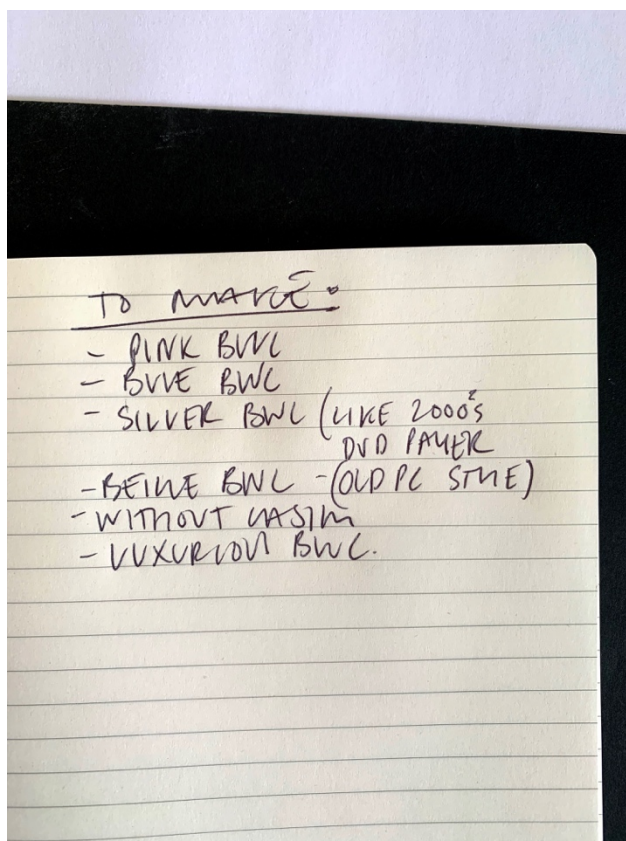 TO MAKE:
- PINK BWL
- BLUE BWL
- SILVER BWL (LIKE 2000's
DVD PLAYER
- BEIGE BWL - (OLD PC STYLE)
- WITHOUT CASING
- LUXURIOUS BWL.